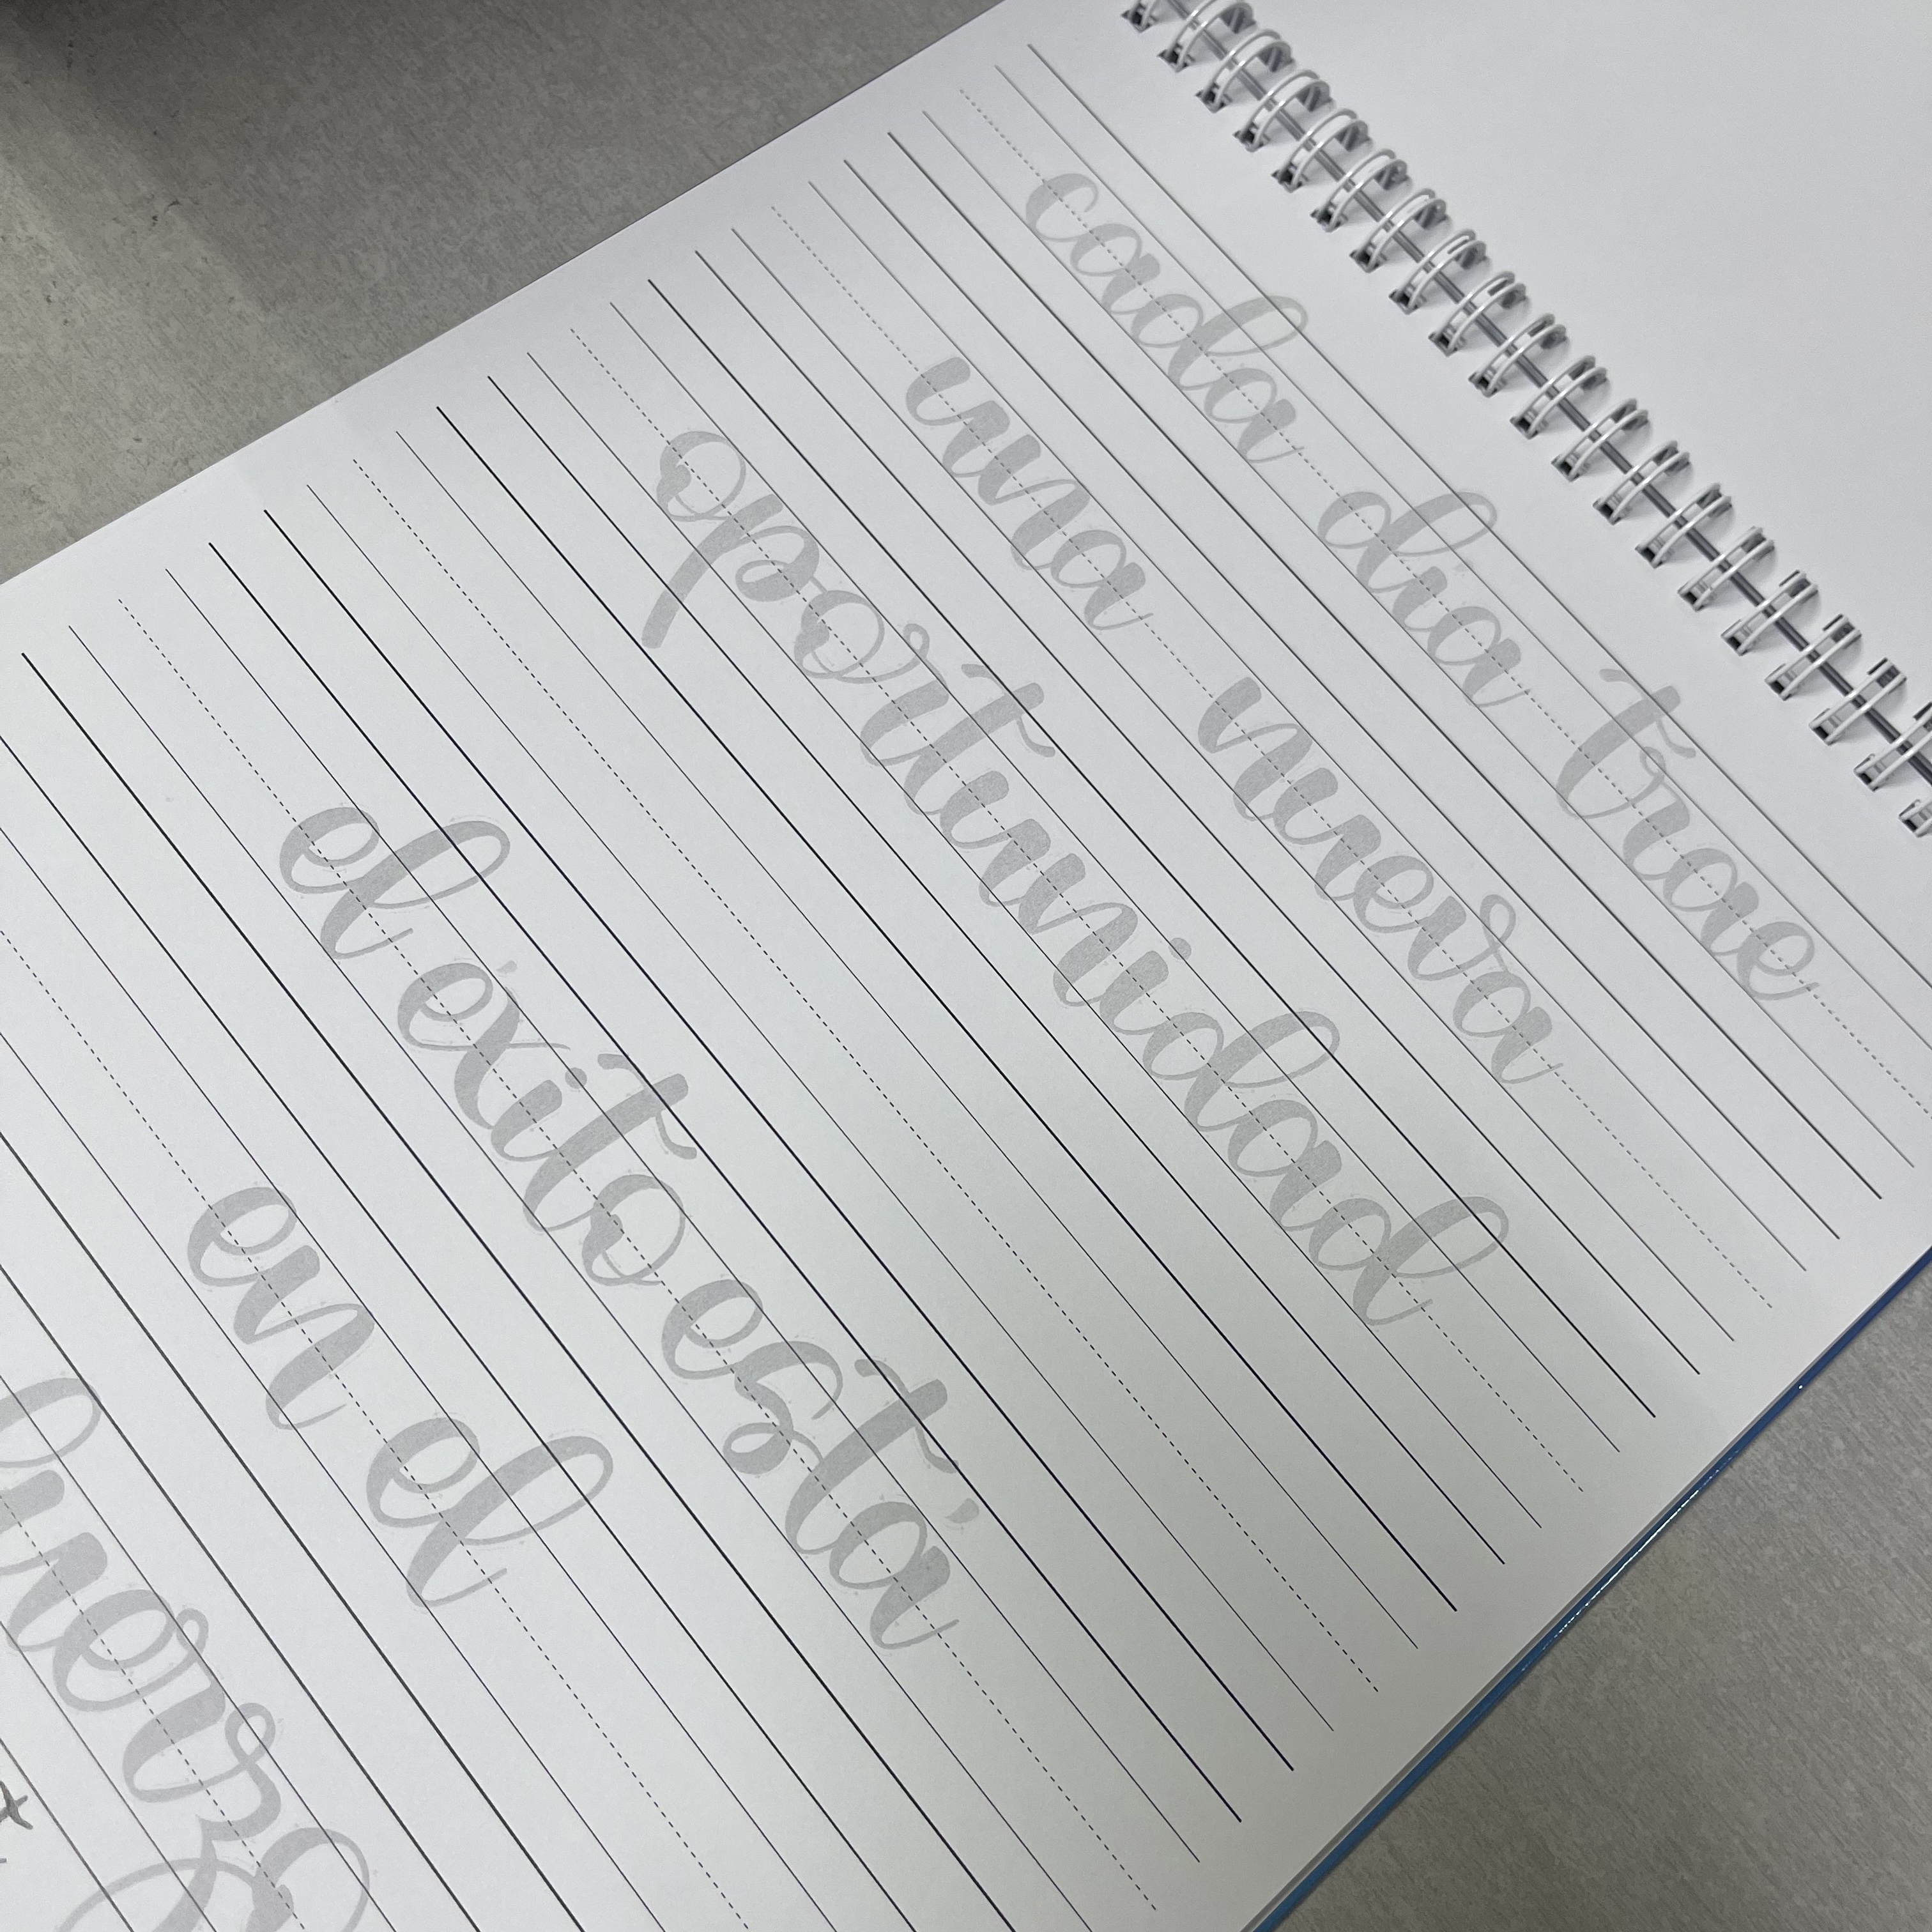 cada dia trae
una nueva
oportunidad
el éxito está
en el